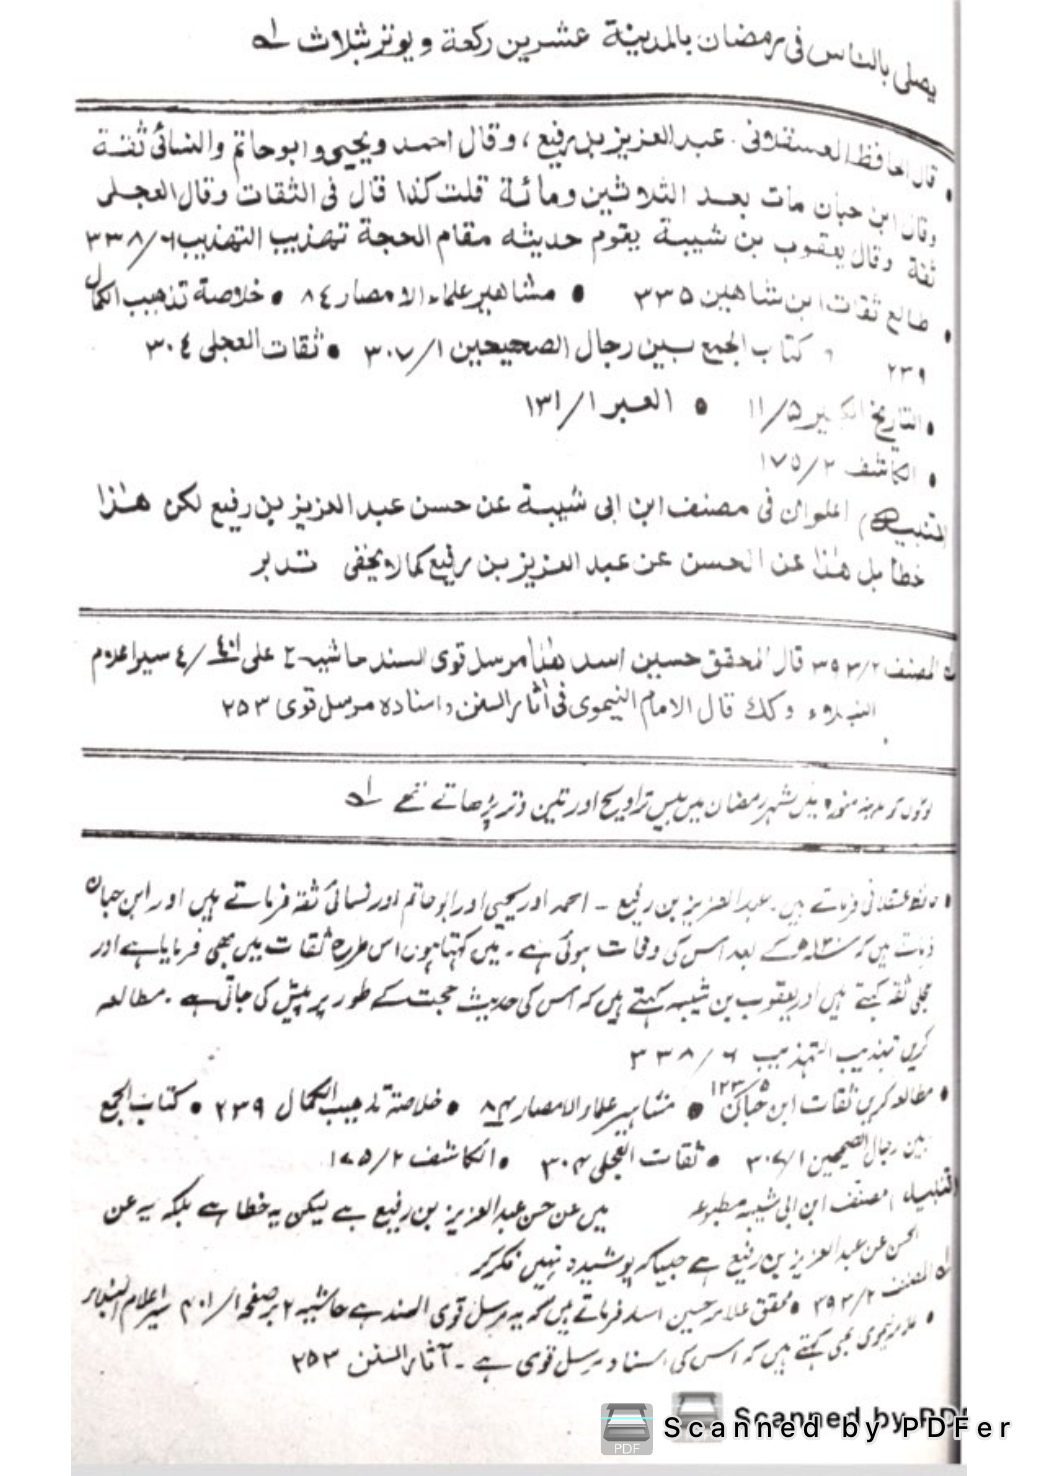 يصلى بالناس فى رمضان بالمدينة عشرين ركعة ويوتر بثلاث
• قال الحافظ العسقلانى . عبد العزيز بن رفيع ، وقال احمد ويحيى وابو حاتم والنسائى ثقة
وقال ابن حبان مات بعد الثلاثين ومائة قلت كذا قال فى الثقات وقال العجلى
ثقة وقال يعقوب بن شيبة يقوم حديثه مقام الحجة تهذيب التهذيب ٣٣٨/٦
• طالع ثقات ابن شاهين ٣٣٥ • مشاهير علماء الامصار ٨٤ • خلاصة تذهيب الكمال
٢٣٩ • كتاب الجمع بين رجال الصحيحين ٣٠٧/١ • ثقات العجلى ٣٠٤
• التاريخ الكبير ١١/٥ • العبر ١٣١/١
• الكاشف ١٧٥/٢
التنبيه) اعلم ان فى مصنف ابن ابى شيبة عن حسن عبد العزيز بن رفيع لكن هذا
خطأ بل هذا عن الحسن عن عبد العزيز بن رفيع كما لا يخفى تدبر
المصنف ٣٩٣/٢ قال المحقق حسين اسد هذا مرسل قوى السند حاشيه ٢ على ٤٠١/٤ سير اعلام
النبلاء وكك قال الامام النيموى فى اثار السنن واسناده مرسل قوى ٢٥٣
لوگوں کو مدینہ منورہ میں شہر رمضان میں بیس تراویح اور تین وتر پڑھاتے تھے
• حافظ عسقلانی فرماتے ہیں . عبد العزیز بن رفیع ۔ احمد اور یحیی اور ابو حاتم اور نسائی ثقہ فرماتے ہیں اور ابن حبان
فرماتے ہیں کہ ۱۳۰ھ کے بعد اس کی وفات ہوئی ہے ۔ میں کہتا ہوں اس طرح ثقات میں بھی فرمایا ہے اور
عجلی ثقہ کہتے ہیں اور یعقوب بن شیبہ کہتے ہیں کہ اس کی حدیث حجت کے طور پر پیش کی جاتی ہے . مطالعہ
کریں تہذیب التہذیب ۳۳۸/۶
• مطالعہ کریں ثقات ابن حبان ۱۲۳/۵ • مشاہیر علماء الامصار ۸۴ • خلاصۃ تذہیب الکمال ۲۳۹ • کتاب الجمع
بین رجال الصحیحین ۳۰۷/۱ • ثقات العجلی ۳۰۴ • الکاشف ۱۷۵/۲
التنبیہ) مصنف ابن ابی شیبہ مطبوعہ میں عن حسن عبد العزیز بن رفیع ہے لیکن یہ خطا ہے بلکہ یہ عن
الحسن عن عبد العزیز بن رفیع ہے جیسا کہ پوشیدہ نہیں فکر کر
المصنف ۳۹۳/۲ • محقق علامہ حسین اسد فرماتے ہیں کہ یہ مرسل قوی السند ہے حاشیہ ۲ بر صفحہ ۴۰۱/ سیر اعلام النبلاء
• علامہ نیموی بھی کہتے ہیں کہ اس کی اسناد مرسل قوی ہے ۔ آثار السنن ۲۵۳
Scanned by PDFer
Scanned by PDFer